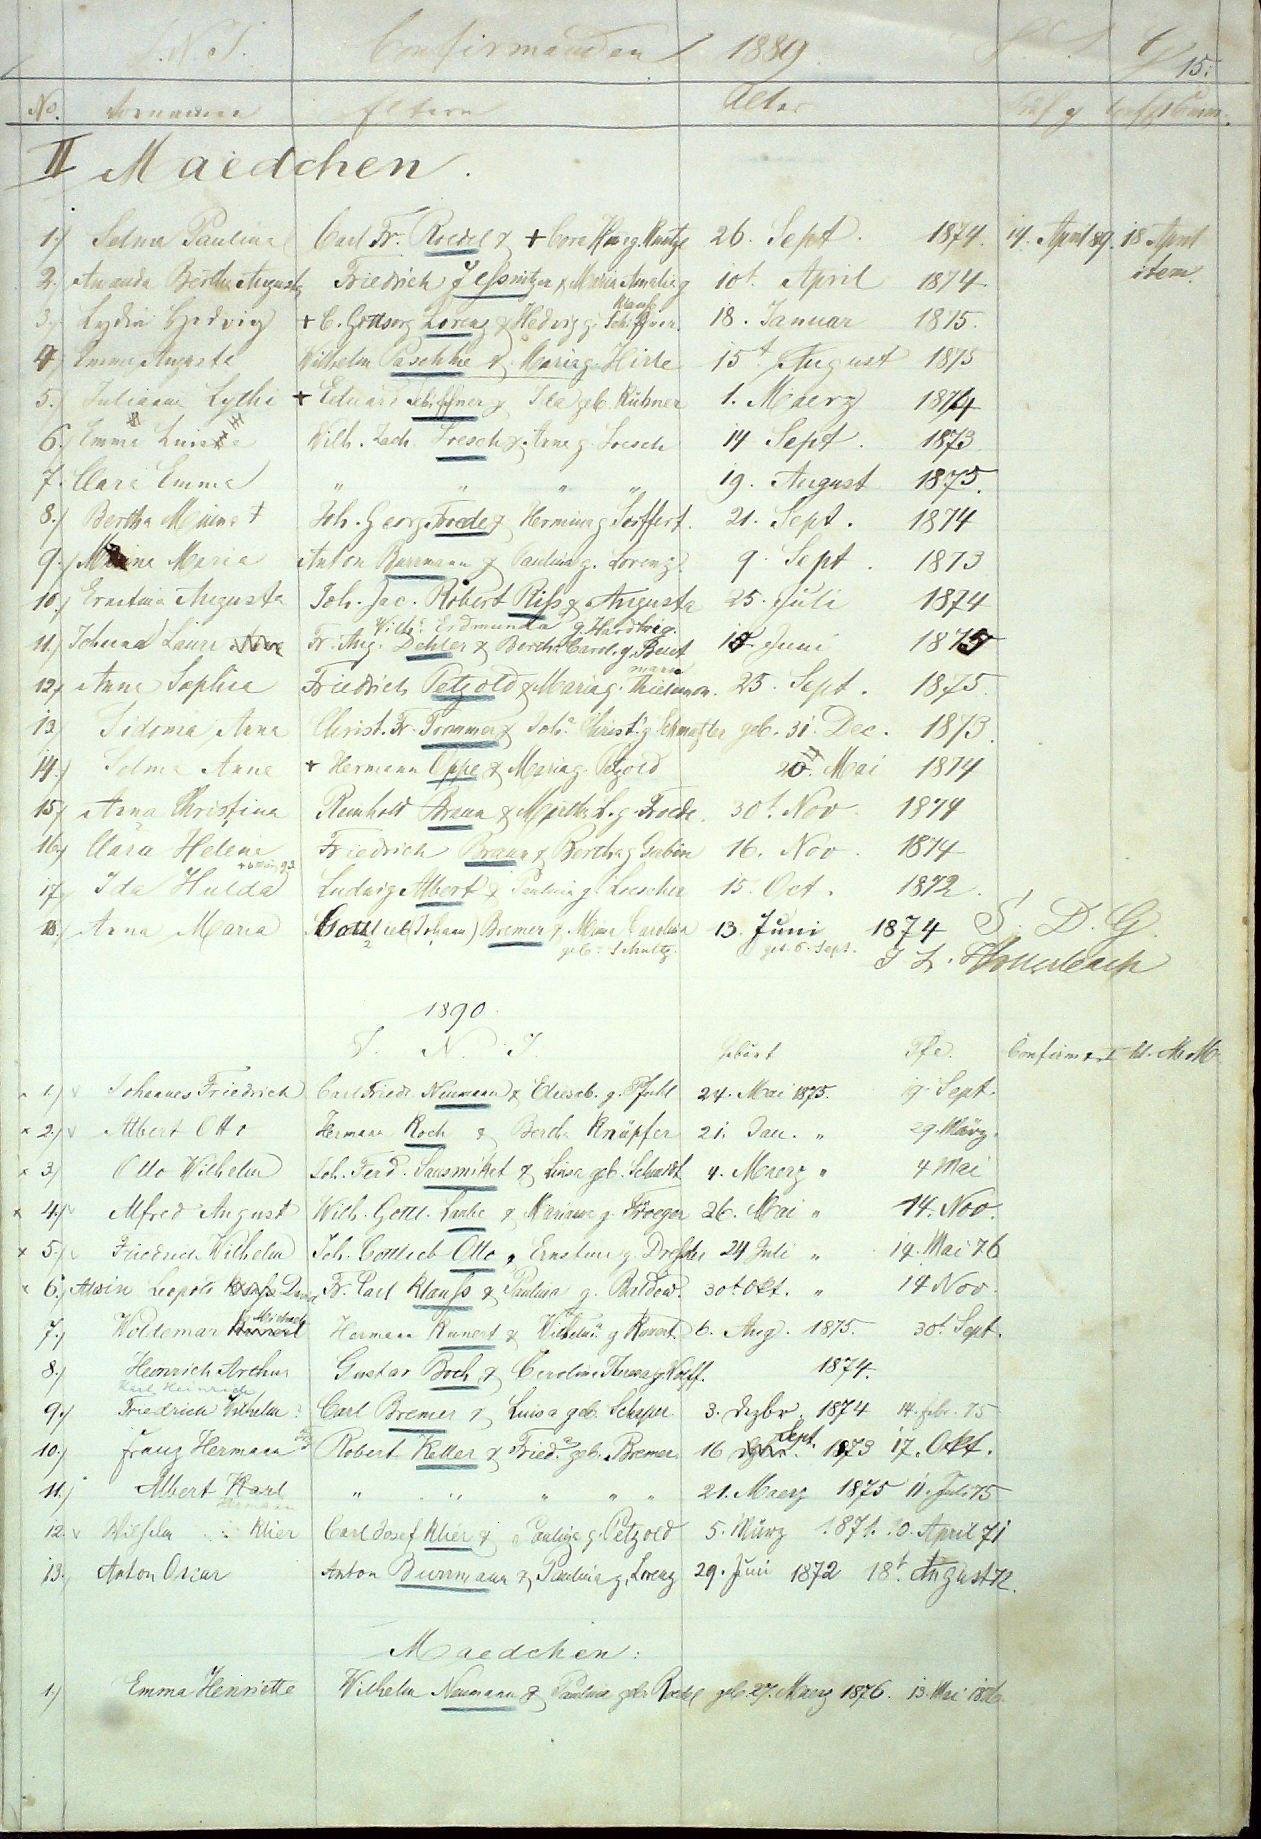 I.N.I. Confirmanden 1889. 15.
No. Vornamen Eltern Alter
II Maedchen.
1.) Selma Paulina Carl Fr. Roedel & + 26. Sept. 1874. 14. April 89. 18 April
2. Amanda Bertha Augusta Friedrich Jessnitzer & Maria Amalie g 10t. April 1874. item.
Klauß
3. Lydia Hedvig + C. Gottsorg Lorenz & Hedvig g. 18. Januar 1875.
4 Emma Augusta Wilhelm Paschke & Maria g. Hirte 15t. August 1875
5. Juliane Lydia + Eduard Schiffner & Ida geb. Kühner 1. Maerz 1874
6. Emma Wilh. Zach. Loesch & Anna g. Loesch 14 Sept. 1873
7. Clara Emma " " " " 19. August 1875.
8.) Bertha Minna + Joh. Georg Froede & Hermine g Soffert. 21. Sept. 1874
9.) Maria Anton Burmann & Paulina g. Lorenz. 9. Sept. 1873
10.) Ernstina Augusta Joh. Jac. Robert Riß & Augusta 25. Juli 1874
Wilh. Erdmunda g. Hardtweg.
11.) Johanna Laura Fr. Aug. Dehler & Berth. Carol. g. Beut Juni 1875
mann
12.) Anna Sophia Friedrich Petzold & Maria g. Thielemann. 25. Sept. 1875.
13. Sidonia Anna Christ. Fr. Trommer & Joh. Christ. g. geb. 31. Dec. 1873.
14.) Selma Anna + Hermann Oppe & Maria g. Petzold 20. Mai 1874
15.) Anna Christina Reinhold Braun & Martha L. g. Froede. 30t. Nov. 1874
16.) Clara Helena Friedrich Braun & Bertha g Gubin 16. Nov. 1874
17. Ida Hulda Ludwig Albert & Paulina g. Loescher 15. Oct. 1872.
18. Anna Maria Gottlieb (Johann) Bremer & Maria Carolina 13. Juni 1874 S. D. G.
geb. Schultz. get. 6. Sept. Hollerbach
1890.
I. N. I.
Geburt Tfe. Confirm
1.) Johannes Friedrich Carl Friedr. Neumann & Eliesab. g. Pfuhl 24. Mai 1875. 19. Sept.
2.) Albert Otto Hermann Koch & Berth. Knüpfer 21. Jan. " 29. März.
3.) Otto Wilhelm Joh. Ferd. & Luisa geb. Schmidt 4. Maerz " 4 Mai
4.) Alfred August Wilh. Gottl. & g. Troeger 26. Mai " 14. Nov.
5.) Friedrich Wilhelm Joh. Gottlieb Otto & Ernstine g. Dreßler 24 Juli " 14. Mai 76
6.) Alwin Leopold Fr. Carl Klauß & Paulina g. Buldow. 30t. Okt. " 14 Nov.
Michael
7.) Woldemar Hermann Kunert & Wilhelm. g Kunert. 6. Aug. 1875. 30t. Sept.
8.) Heinrich Arthur Gustav Boch & Carolina Theresa g. Wolff. 1874.
Karl Heinrich
9.) Friedrich Wilhelm Carl Bremer & Luisa geb. Schaper 3. Dezbr. 1874 14. Febr. 75
10.) Franz Hermann Robert Keller & Fried. geb. Bremer. 16 Sept. 1873 17. Okt.
11.) Albert Karl " " " " " 21. Maerz 1875 11. Juli 75
Hermann
12. Wilhelm Klier Carl Josef Klier & Paulina g. Petzold 5. März 1871. 10. April 71
13. Anton Oscar Anton Burrmann & Paulina g. Lorenz 29. Juni 1872 18t. August 72.
Maedchen:
1.) Emma Henriette Wilhelm Neumann & Paulina geb. Roedel geb. 27. Maerz 1876. 13. Mai 1876